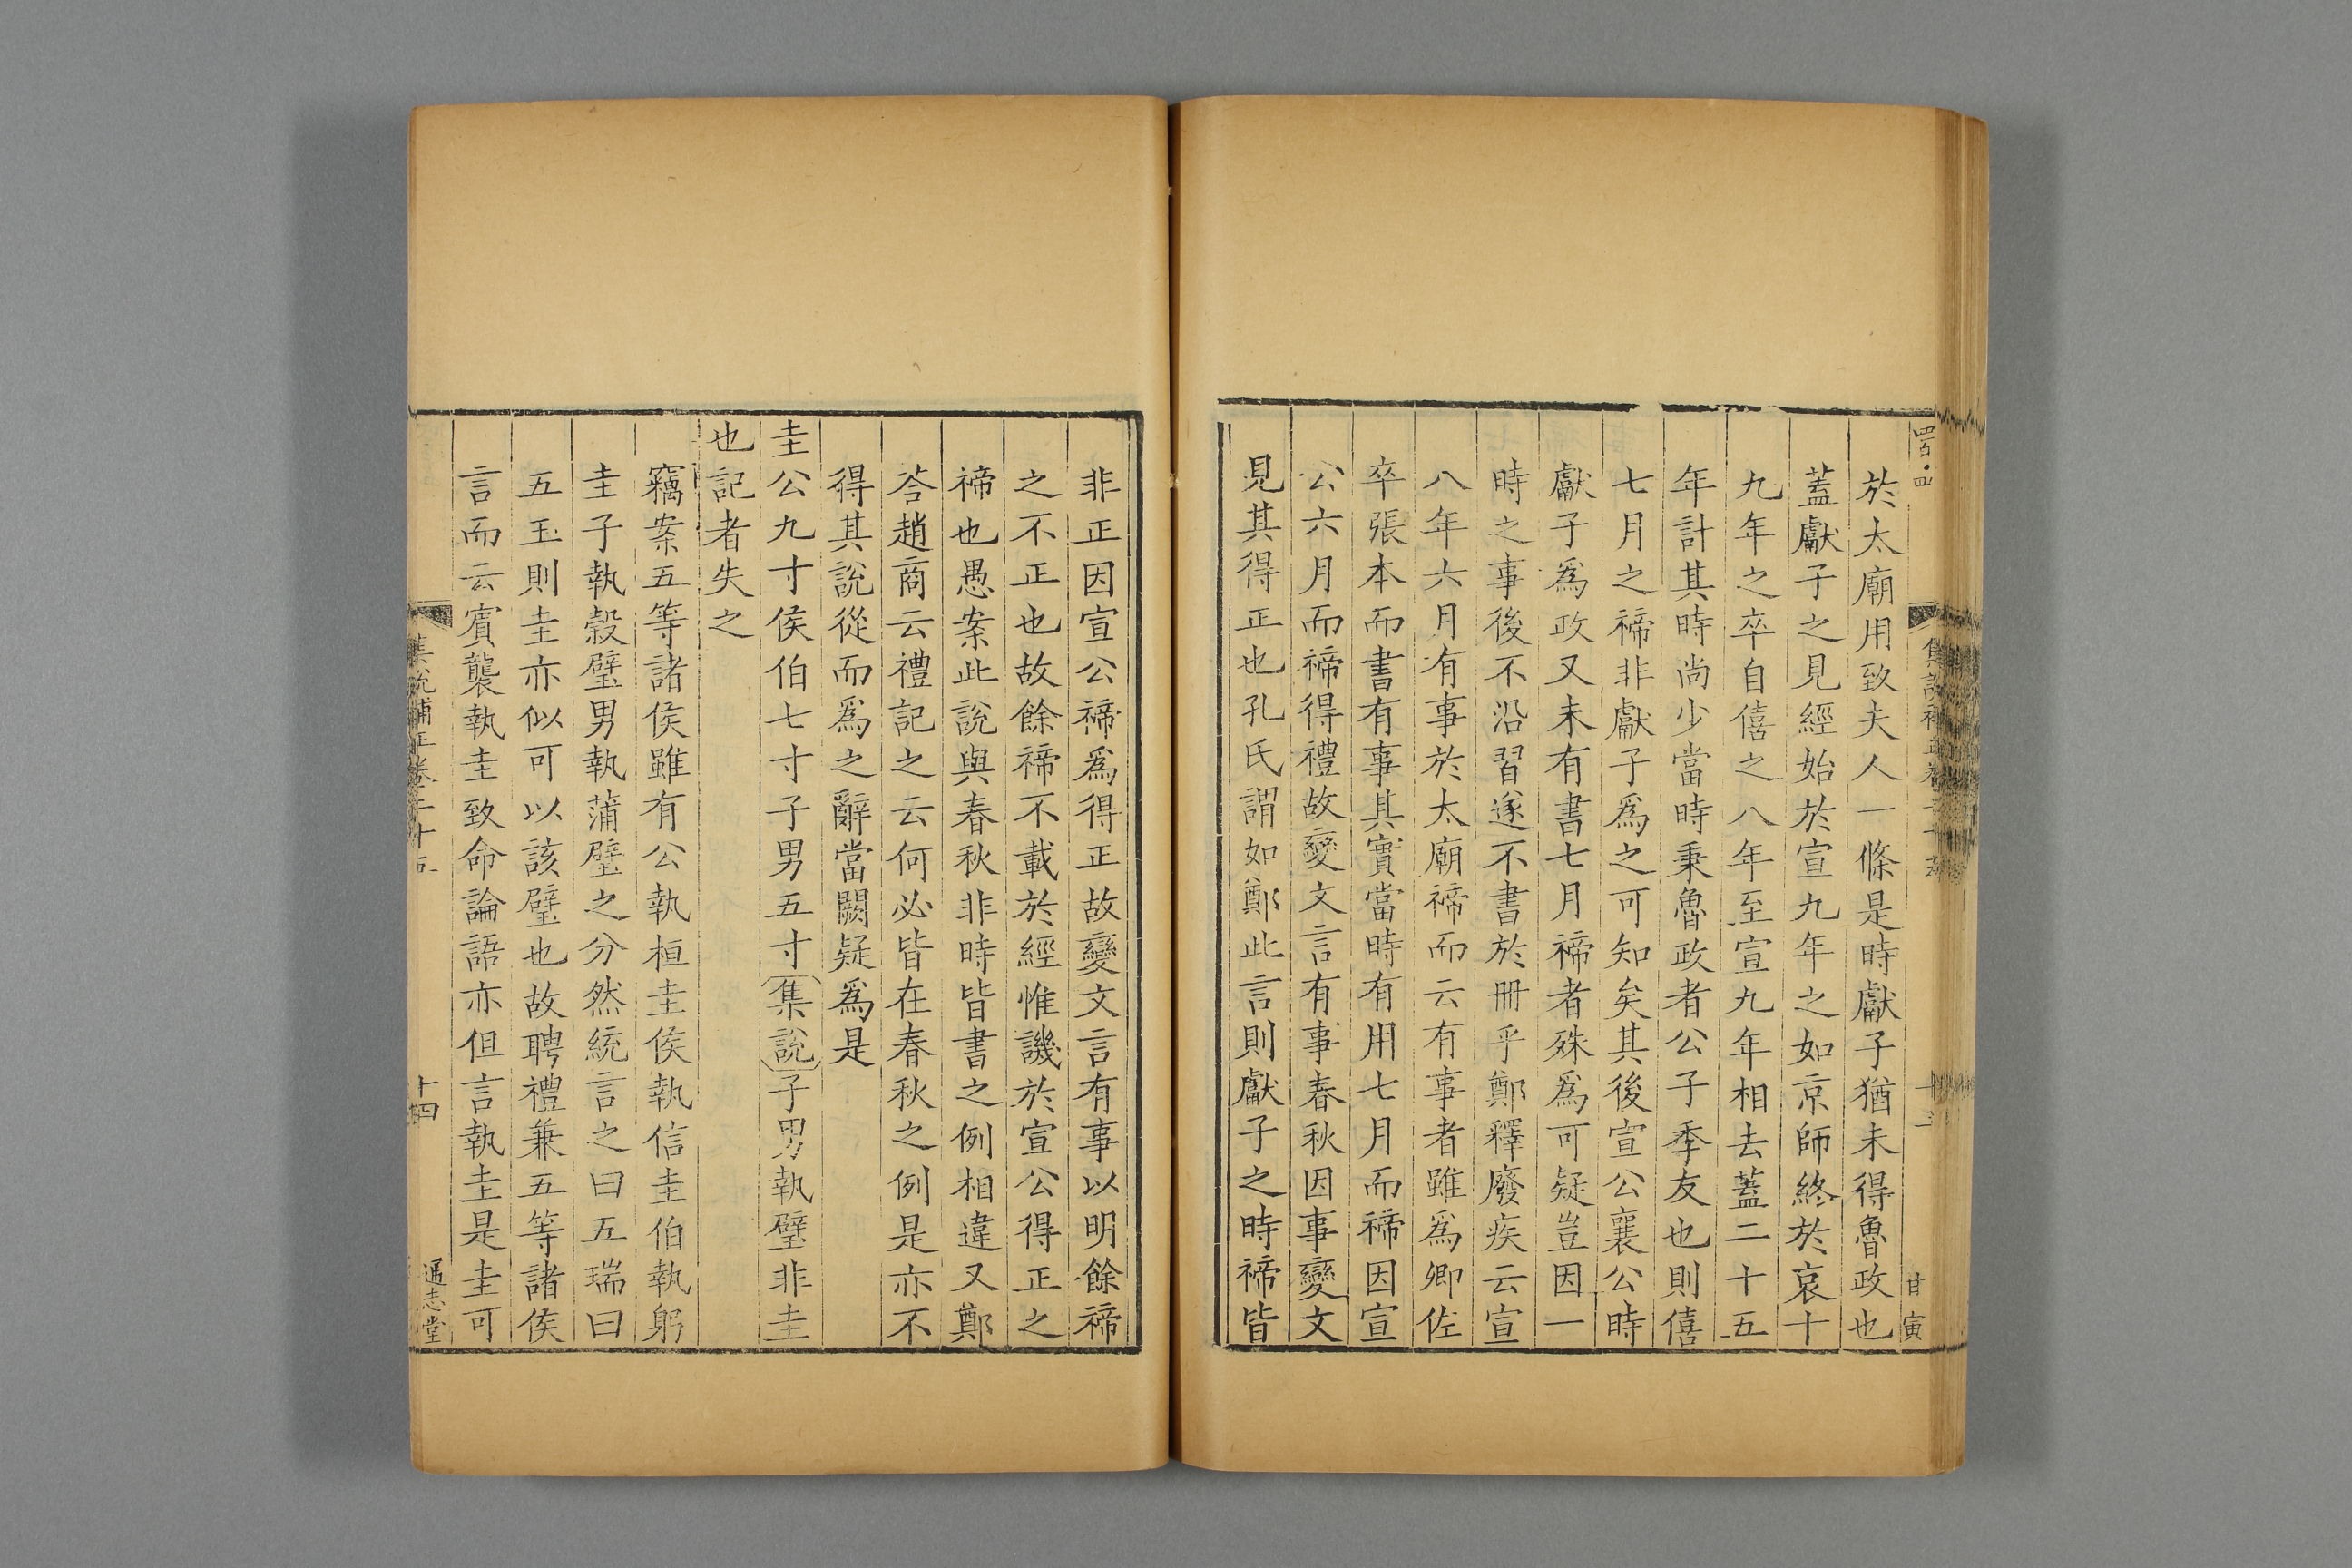 四百〇四
集說補正卷二十五
十三
甘寅
於太廟用致夫人一條是時獻子猶未得魯政也
蓋獻子之見經始於宣九年之如京師終於哀十
九年之卒自僖之八年至宣九年相去蓋二十五
年計其時尚少當時秉魯政者公子季友也則僖
七月之禘非獻子爲之可知矣其後宣公襄公時
獻子爲政又未有書七月禘者殊爲可疑豈因一
時之事後不沿習遂不書於冊乎鄭釋廢疾云宣
八年六月有事於太廟禘而云有事者雖爲卿佐
卒張本而書有事其實當時有用七月而禘因宣
公六月而禘得禮故變文言有事春秋因事變文
見其得正也孔氏謂如鄭此言則獻子之時禘皆
非正因宣公禘爲得正故變文言有事以明餘禘
之不正也故餘禘不載於經惟譏於宣公得正之
禘也愚案此說與春秋非時皆書之例相違又鄭
荅趙商云禮記之云何必皆在春秋之例是亦不
得其說從而爲之辭當闕疑爲是
圭公九寸侯伯七寸子男五寸集說子男執璧非圭
也記者失之
竊案五等諸侯雖有公執桓圭侯執信圭伯執躬
圭子執穀璧男執蒲璧之分然統言之曰五瑞曰
五玉則圭亦似可以該璧也故聘禮兼五等諸侯
言而云賓襲執圭致命論語亦但言執圭是圭可
集說補正卷二十五
十四
通志堂